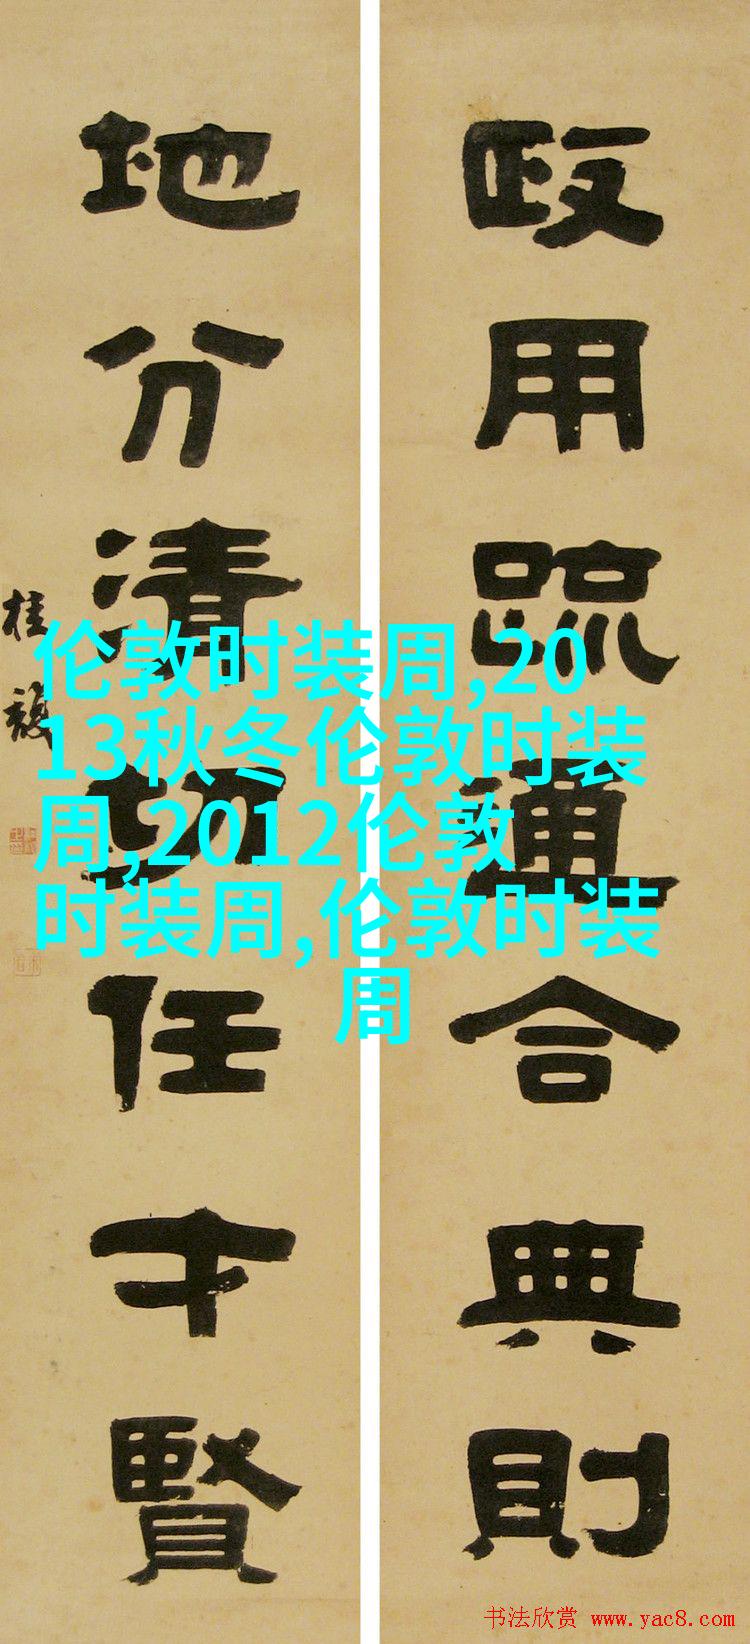 政用疏通合典則
地分清切任才賢
桂馥
伦敦时装周,20
13秋冬伦敦时装
周,2012伦敦
时装周,伦敦时装
周
书法欣赏 www.yac8.com